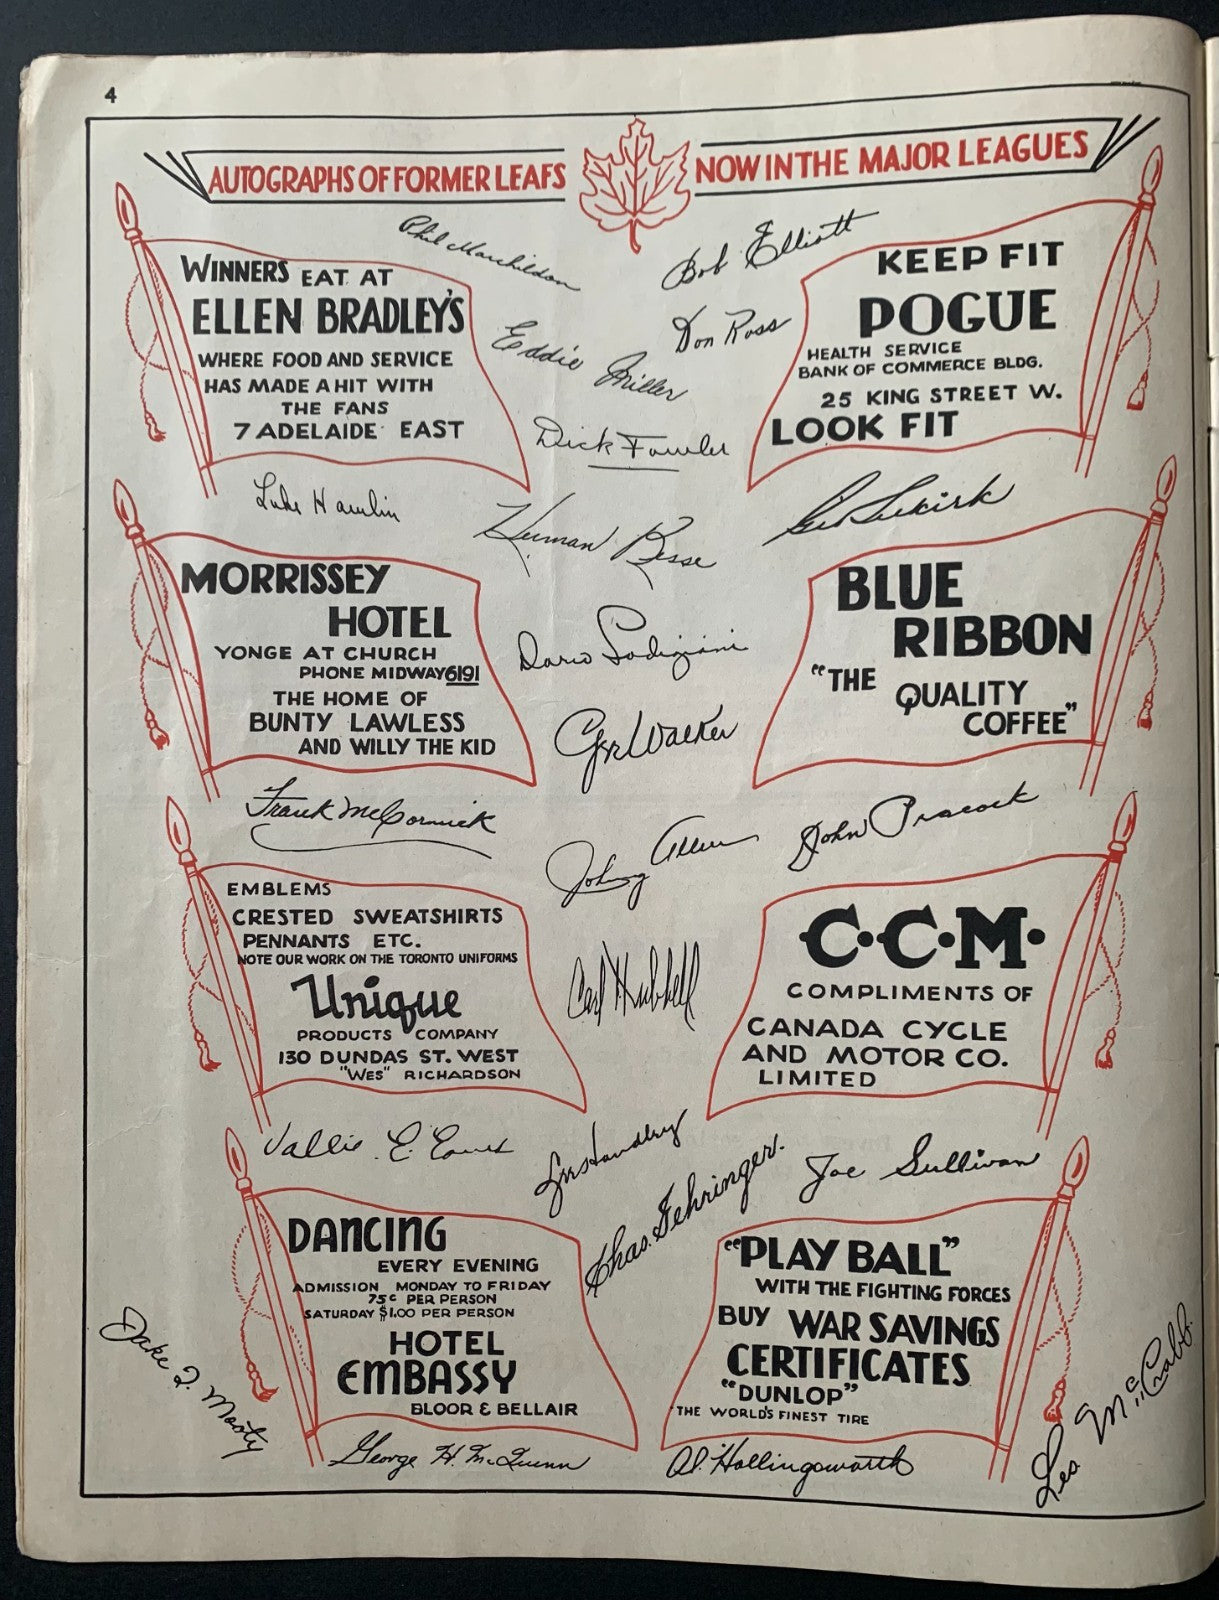 4
AUTOGRAPHS OF FORMER LEAFS NOW IN THE MAJOR LEAGUES
Phil Marchildon
Bob Elliott
WINNERS EAT AT
ELLEN BRADLEY'S
WHERE FOOD AND SERVICE
HAS MADE A HIT WITH
THE FANS
7 ADELAIDE EAST
Eddie Miller
Don Ross
Dick Fowler
KEEP FIT
POGUE
HEALTH SERVICE
BANK OF COMMERCE BLDG.
25 KING STREET W.
LOOK FIT
Luke Hamlin
Herman Besse
MORRISSEY
HOTEL
YONGE AT CHURCH
PHONE MIDWAY 6191
THE HOME OF
BUNTY LAWLESS
AND WILLY THE KID
Dario Lodigiani
Gee Walker
BLUE
RIBBON
"THE
QUALITY
COFFEE"
Frank McCormick
Johnny Allen
John Peacock
EMBLEMS
CRESTED SWEATSHIRTS
PENNANTS ETC.
NOTE OUR WORK ON THE TORONTO UNIFORMS
Unique
PRODUCTS COMPANY
130 DUNDAS ST. WEST
"WES" RICHARDSON
Carl Hubbell
C·C·M·
COMPLIMENTS OF
CANADA CYCLE
AND MOTOR CO.
LIMITED
Vallie E. Eaves
Lee Handley
Chas. Gehringer.
Joe Sullivan
DANCING
EVERY EVENING
ADMISSION MONDAY TO FRIDAY
75¢ PER PERSON
SATURDAY $1.00 PER PERSON
HOTEL
EMBASSY
BLOOR & BELLAIR
"PLAY BALL"
WITH THE FIGHTING FORCES
BUY WAR SAVINGS
CERTIFICATES
"DUNLOP"
THE WORLD'S FINEST TIRE
Jake
George H. McQuinn
Al. Hollingsworth
Les McCrabb